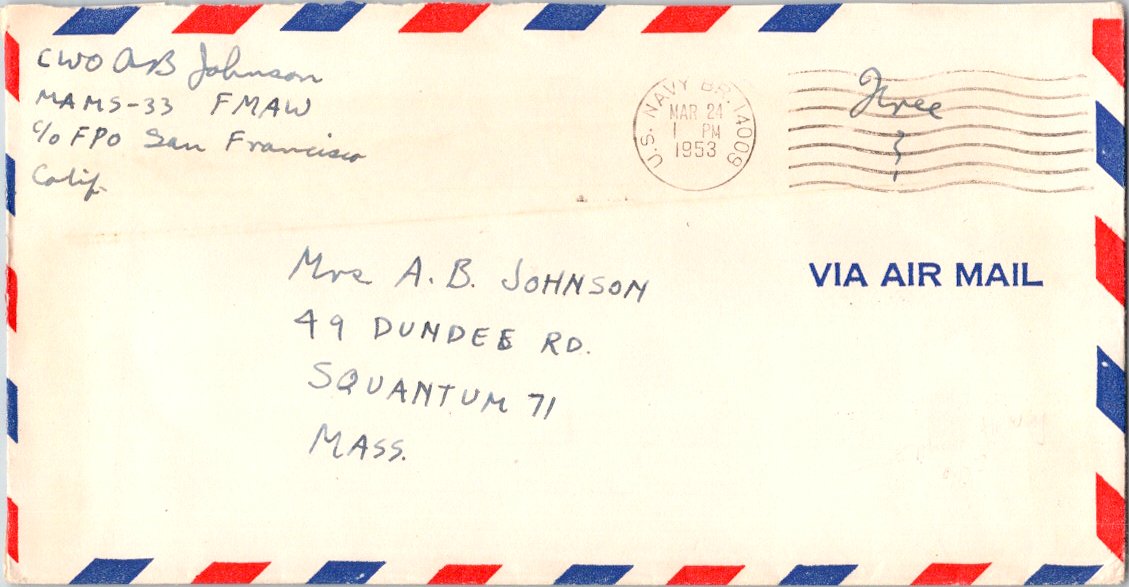 CWO AB Johnson
MAMS-33 FMAW
c/o FPO San Francisco
Calif.
U.S. NAVY BR. 14009
MAR 24
1 PM
1953
Free
VIA AIR MAIL
Mrs A. B. JOHNSON
49 DUNDEE RD.
SQUANTUM 71
MASS.